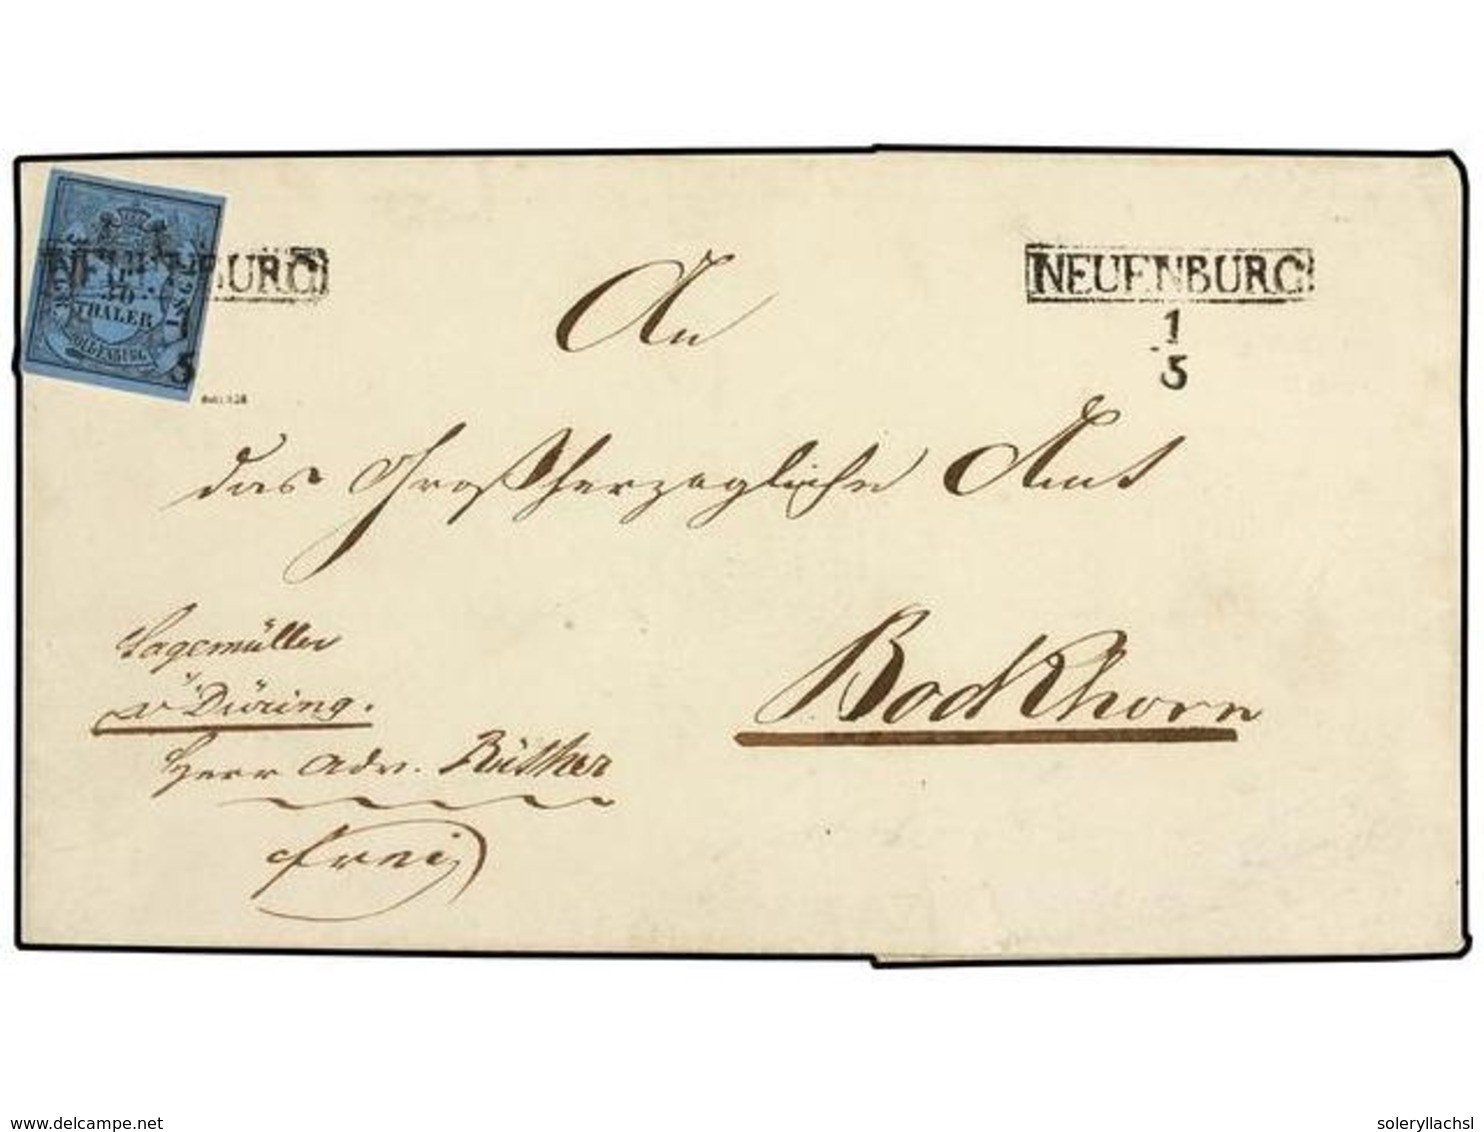 NEUENBURG
1/30
THALER
OLDENBURG
5
NEUENBURG
1
5
An
das Großherzogliche Amt
Bockhorn
Hagemüller
v. Düring.
Herr Adv. Rüther
frei
delcampe.net
soleryllachsl